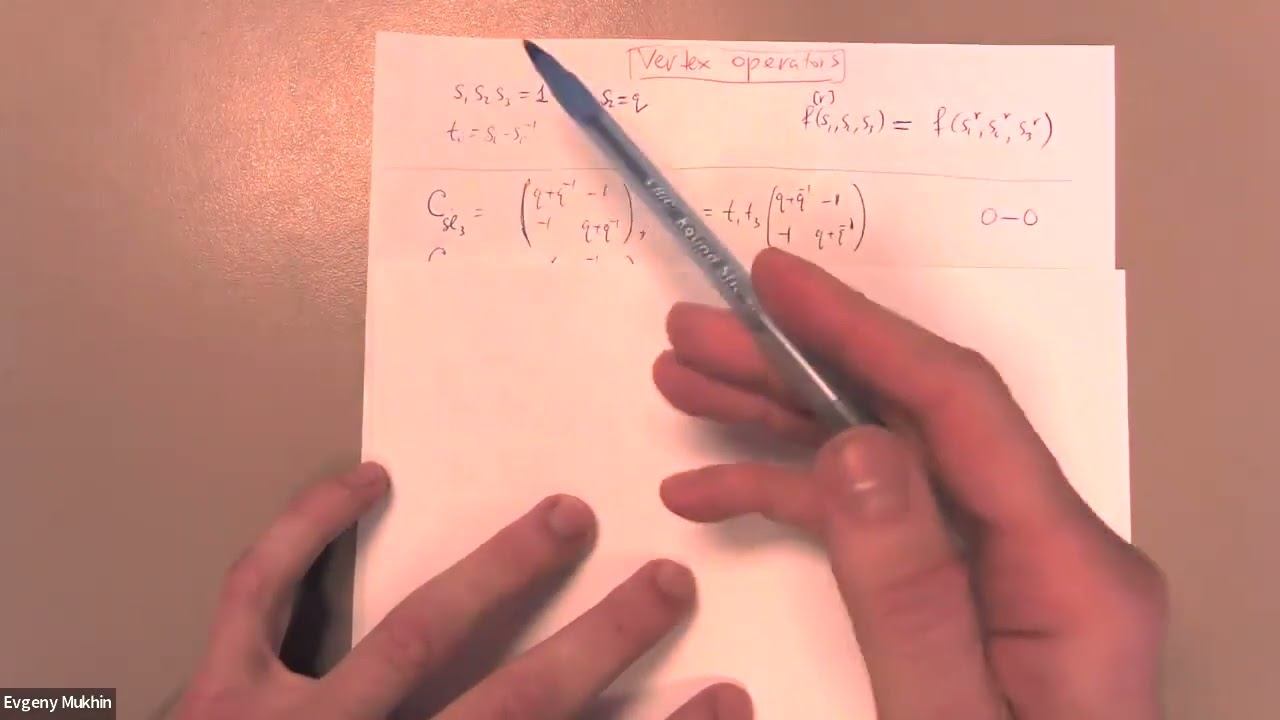 Vertex operators
s₁ s₂ s₃ = 1 s₂ = q
f^{[r]}(s₁, s₂, s₃) = f(s₁^r, s₂^r, s₃^r)
t_i = s_i - s_i^{-1}
C_{sl_3} = \begin{pmatrix} q+q^{-1} & -1 \\ -1 & q+q^{-1} \end{pmatrix}, = t₁ t₃ \begin{pmatrix} q+q^{-1} & -1 \\ -1 & q+q^{-1} \end{pmatrix} O—O
Evgeny Mukhin